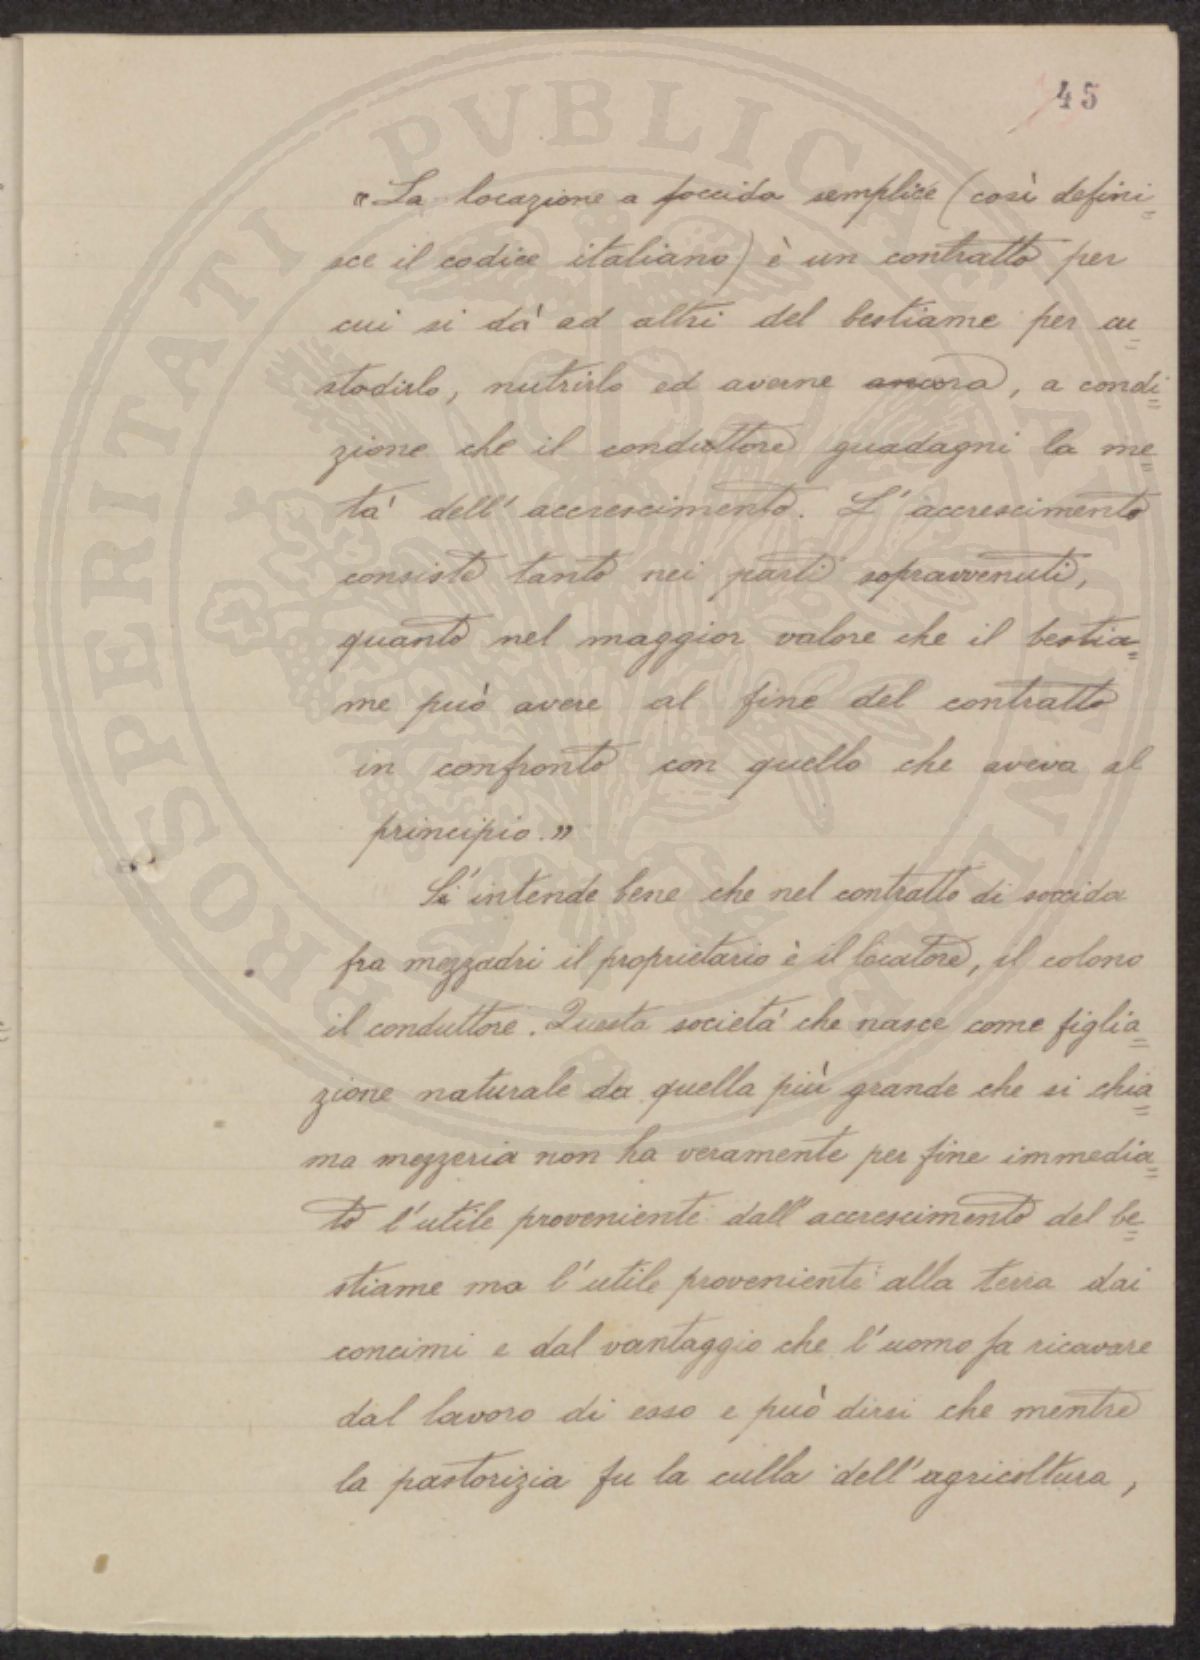 45
"La locazione a soccida semplice (così defini=
sce il codice italiano) è un contratto per
cui si dà ad altri del bestiame per cu=
stodirlo, nutrirlo ed averne ancora, a condi=
zione che il conduttore guadagni la me=
tà dell'accrescimento. L'accrescimento
consiste tanto nei parti sopravvenuti,
quanto nel maggior valore che il bestia=
me può avere al fine del contratto
in confronto con quello che aveva al
principio."
Si intende bene che nel contratto di soccida
fra mezzadri il proprietario è il locatore, il colono
il conduttore. Questa società che nasce come figlia=
zione naturale da quella più grande che si chia=
ma mezzeria non ha veramente per fine immedia=
to l'utile proveniente dall'accrescimento del be=
stiame ma l'utile proveniente alla terra dai
concimi e dal vantaggio che l'uomo fa ricavare
dal lavoro di esso e può dirsi che mentre
la pastorizia fu la culla dell'agricoltura,
PROSPERITATI PVBLICAE